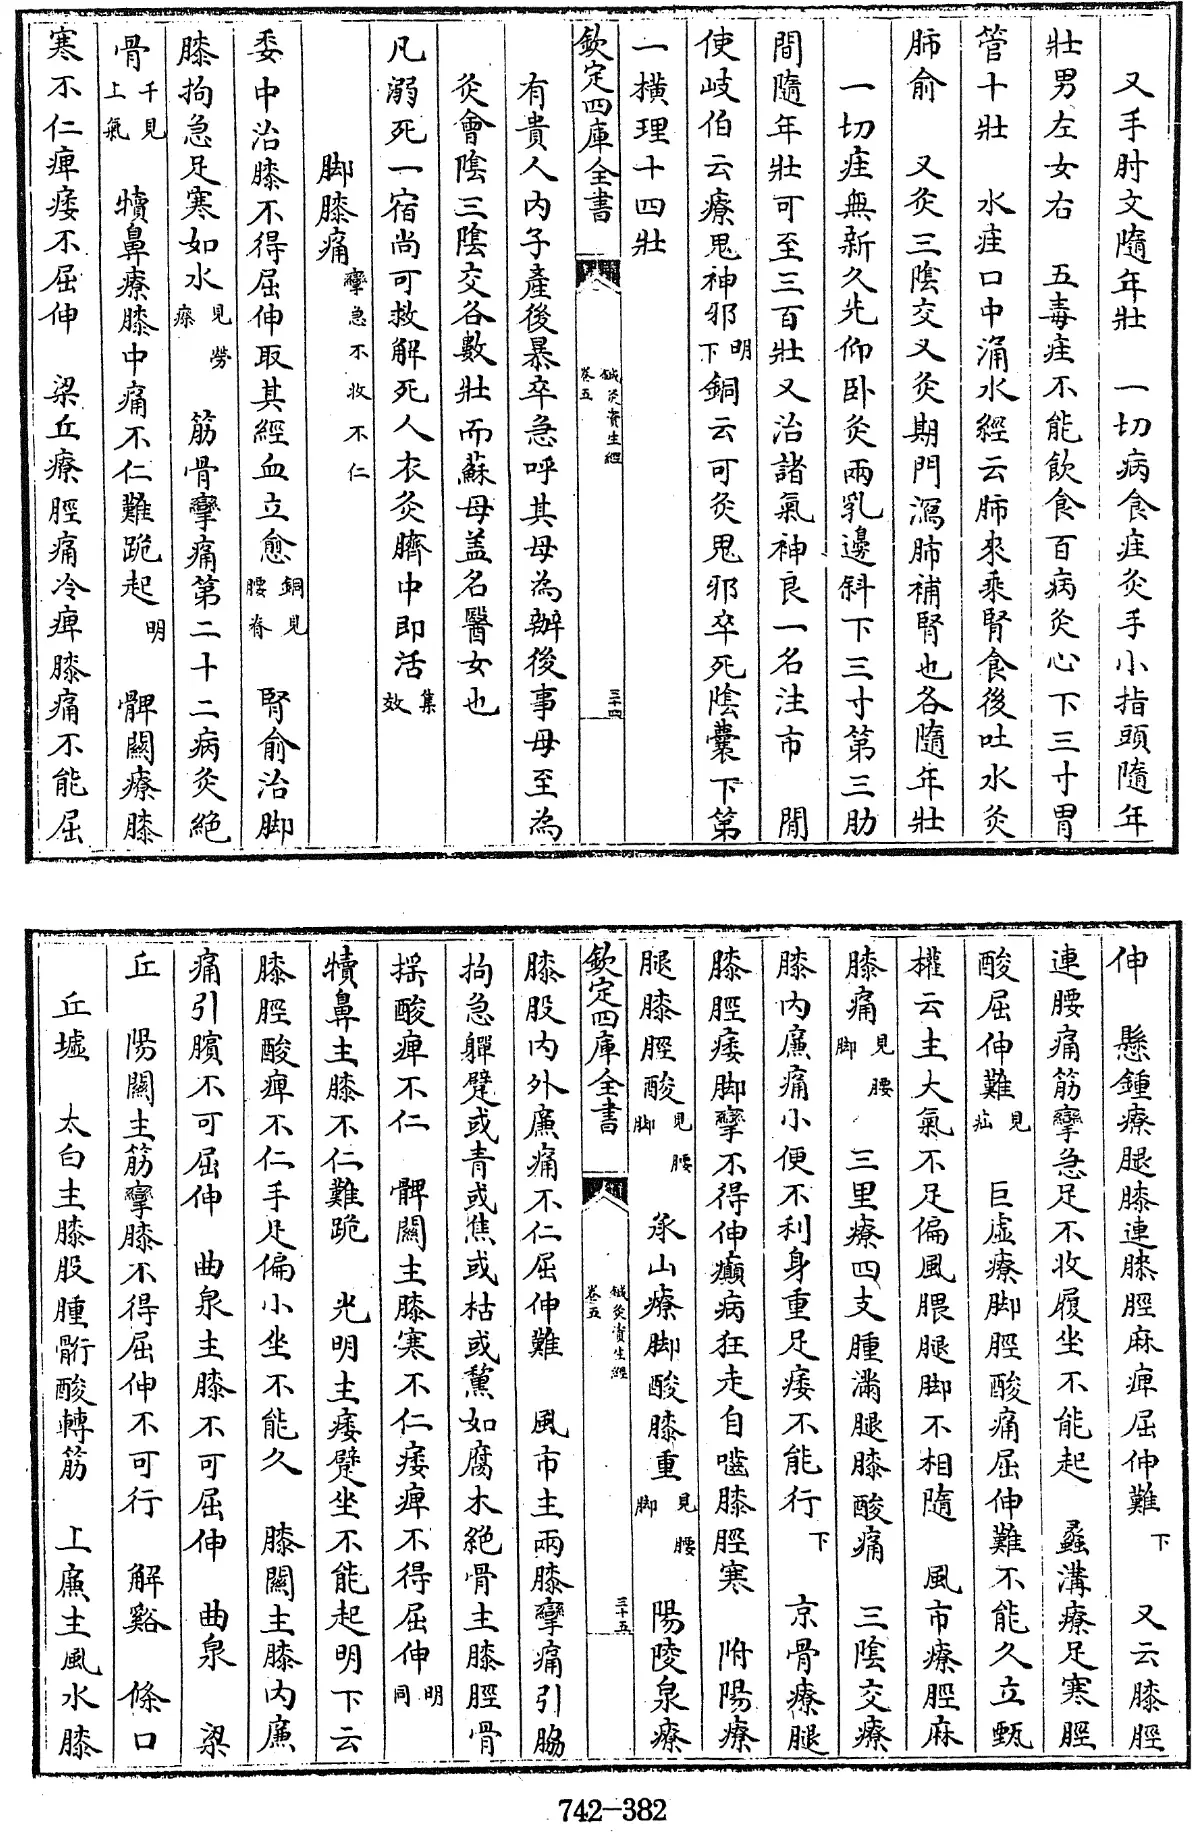 又手肘文隨年壯　一切病食疰灸手小指頭隨年
壯男左女右　五毒疰不能飲食百病灸心下三寸胃
管十壯　水疰口中涌水經云肺來乘腎食後吐水灸
肺俞　又灸三陰交又灸期門瀉肺補腎也各隨年壯
一切疰無新久先仰卧灸兩乳邊斜下三寸第三肋
間隨年壯可至三百壯又治諸氣神良一名注市　閒
使岐伯云療鬼神邪明下銅云可灸鬼邪卒死陰囊下第
一橫理十四壯
欽定四庫全書
鍼灸資生經
卷五
三十四
有貴人内子產後暴卒急呼其母為辦後事母至為
灸會陰三陰交各數壯而蘇母盖名醫女也
凡溺死一宿尚可救解死人衣灸臍中即活集效
脚膝痛攣急不收不仁
委中治膝不得屈伸取其經血立愈銅見腰脊　腎俞治脚
膝拘急足寒如水見勞瘵　筋骨攣痛第二十二病灸絶
骨千見上氣　犢鼻療膝中痛不仁難跪起明　髀關療膝
寒不仁痺痿不屈伸　梁丘療脛痛冷痺膝痛不能屈
伸　懸鍾療腿膝連膝脛麻痺屈伸難下　又云膝脛
連腰痛筋攣急足不收履坐不能起　蠡溝療足寒脛
酸屈伸難見疝　巨虛療脚脛酸痛屈伸難不能久立甄
權云主大氣不足偏風腲腿脚不相隨　風市療脛麻
膝痛見腰脚　三里療四支腫滿腿膝酸痛　三陰交療
膝内廉痛小便不利身重足痿不能行下　京骨療腿
膝脛痿脚攣不得伸癲病狂走自嚙膝脛寒　附陽療
腿膝脛酸見腰脚　承山療脚酸膝重見腰脚　陽陵泉療
欽定四庫全書
鍼灸資生經
卷五
三十五
膝股内外廉痛不仁屈伸難　風市主兩膝攣痛引脇
拘急軃躄或青或焦或枯或黧如腐木絶骨主膝脛骨
揺酸痺不仁　髀關主膝寒不仁痿痺不得屈伸明同
犢鼻主膝不仁難跪　光明主痿躄坐不能起明下云
膝脛酸痺不仁手足偏小坐不能久　膝關主膝内廉
痛引臏不可屈伸　曲泉主膝不可屈伸　曲泉　梁
丘　陽關主筋攣膝不得屈伸不可行　解谿　條口
丘墟　太白主膝股腫䯒酸轉筋　上廉主風水膝
742-382